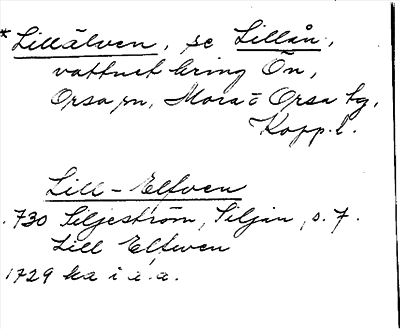 *Lillälven, se Lillån,
vattnet kring Ön,
Orsa sn, Mora o Orsa tg,
Kopp.l.
Lill-Elfven
1730 Siljeström, Siljan, s. 7.
Lill Elfwen
1729 ka i a.a.